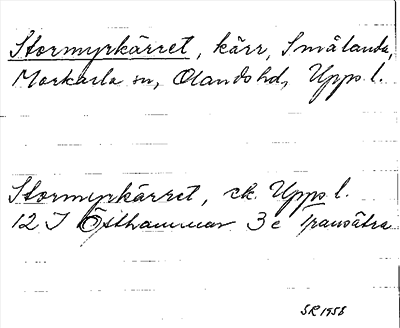 Stormyrkärret, kärr, Smålanda,
Morkarla sn, Olands hd, Upps l.
Stormyrkärret, ek. Upps l.
12 I Östhammar 3 c Spansätra
SR 1958